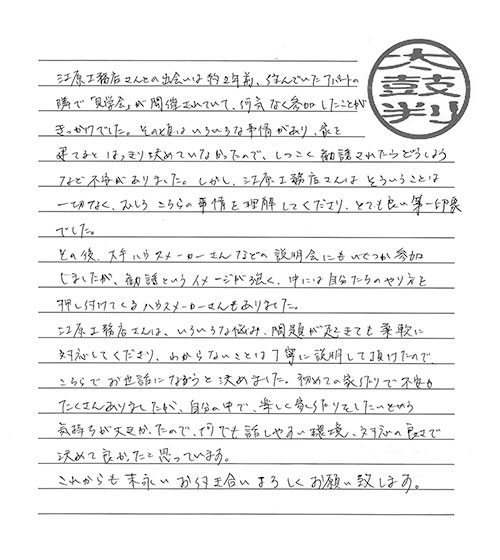 江原工務店さんとの出会いは約2年前、住んでいたアパートの
隣で「見学会」が開催されていて、何気なく参加したことが
きっかけでした。その頃はいろいろな事情があり、家を
建てるとはっきり決めていなかったので、しつこく勧誘されたらどうしよう
など不安がありました。しかし、江原工務店さんはそういうことは
一切なく、むしろこちらの事情を理解してくださり、とても良い第一印象
でした。
その後、大手ハウスメーカーさんなどの説明会にもいくつか参加
しましたが、勧誘というイメージが強く、中には自分たちのやり方を
押し付けてくるハウスメーカーさんもありました。
江原工務店さんは、いろいろな悩み、問題が起きても柔軟に
対応してくださり、わからないことは丁寧に説明して頂けたので、
こちらでお世話になろうと決めました。初めての家作りで不安も
たくさんありましたが、自分の中で、楽しく家作りをしたいという
気持ちが大きかったので、何でも話しやすい環境、対応の良さで
決めて良かったと思っています。
これからも末永いお付き合いよろしくお願い致します。
太鼓判